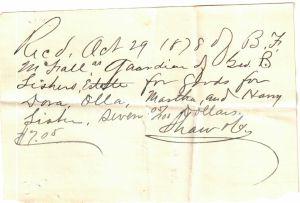 Rec'd, Oct 29 1878 of B. F.
McFall, as Guardian of Geo. B
Sisters, Estate for Goods for
Dora, Olla, Martha, and Harry
Sister, Seven 00/100 Dollars.
$7.00 Shaw & Co,